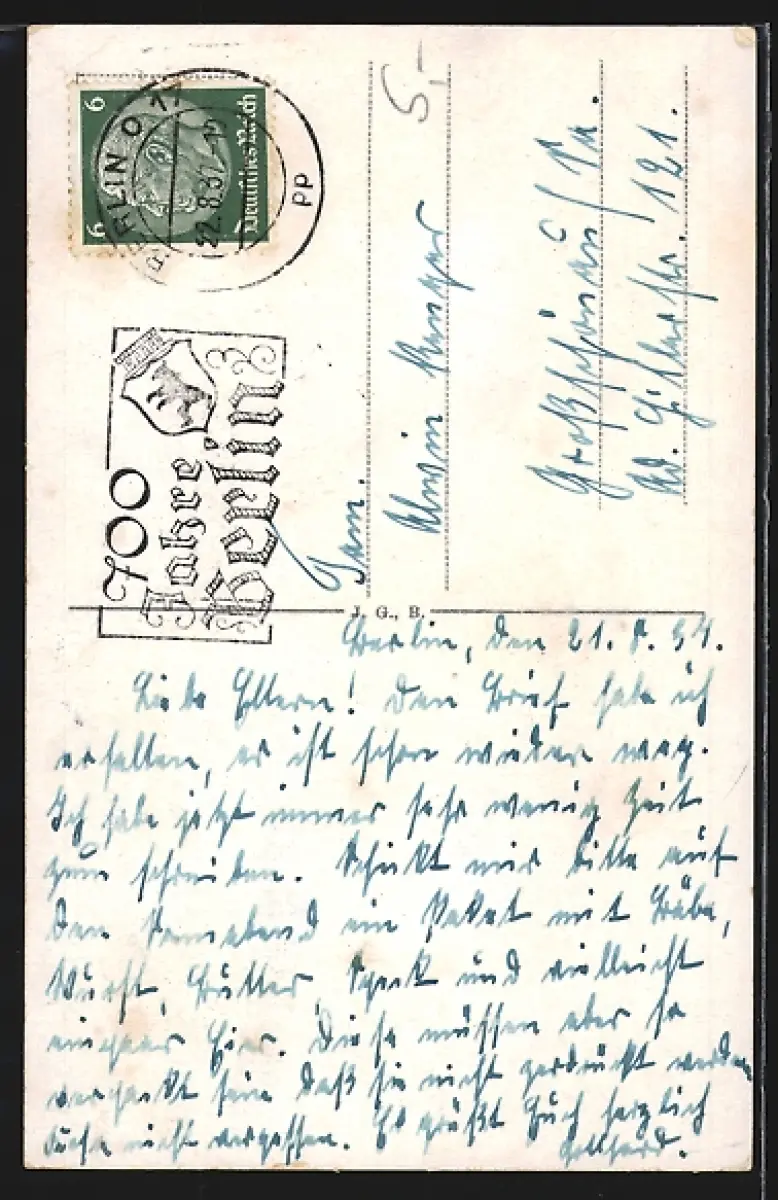 5,-
6 6
Deutsches Reich
BERLIN O 17
22.8.37
pp
700
Jahre
Berlin
Fam.
Alwin
Großschönau/Sa.
Ad. Hitlerstr. 121.
J. G., B.
Berlin, den 21. 8. 37.
Liebe Eltern! Den Brief habe ich
erhalten, er ist schon wieder weg.
Ich habe jetzt immer sehr wenig Zeit
zum schreiben. Schickt mir bitte auf
den Sonnabend ein Paket mit
Wurst, Butter, Speck und vielleicht
ein paar Eier. Diese müssen aber so
verpackt sein daß sie nicht gedrückt werden
nicht vergessen. Es grüßt Euch herzlich
Gotthard.